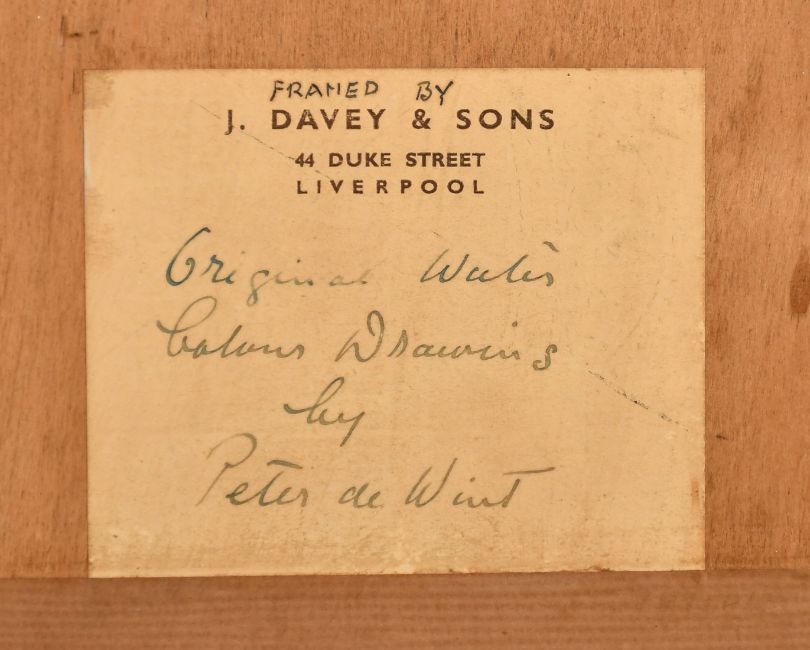 FRAMED BY
J. DAVEY & SONS
44 DUKE STREET
LIVERPOOL
Original Water
Colour Drawing
by
Peter de Wint